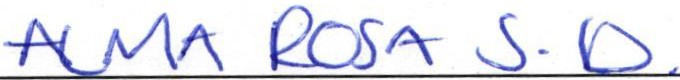 ALMA ROSA S. D.